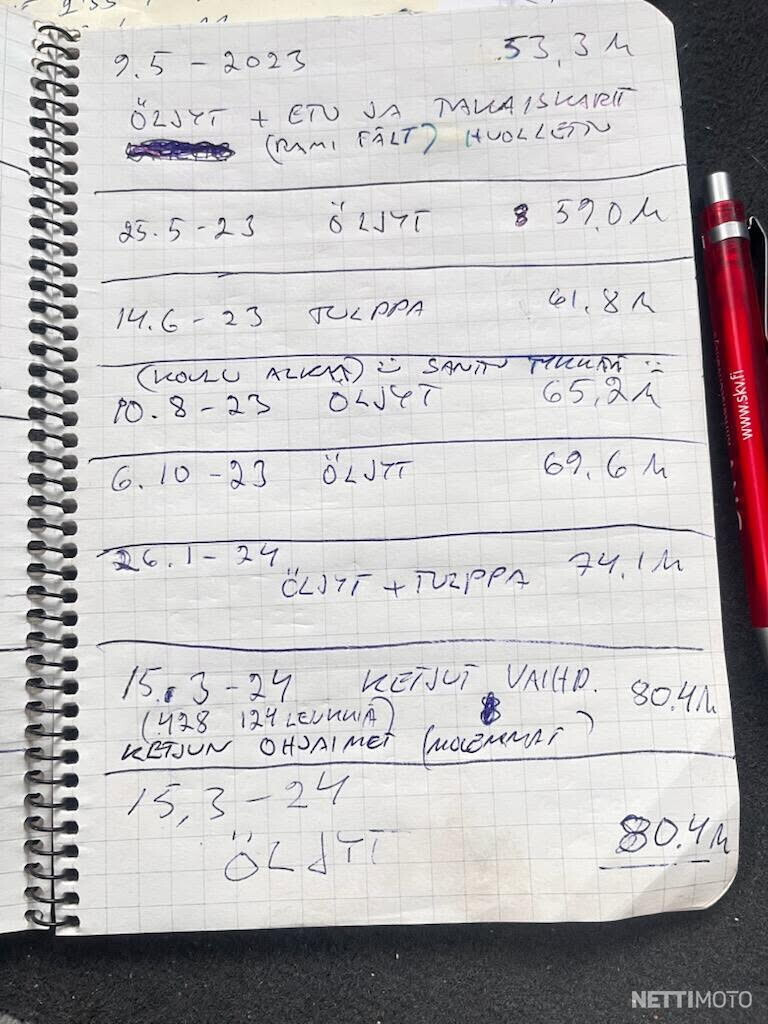 9.5 - 2023 53,3 M
ÖLJYT + ETU JA TAKAISKARIT
(RAMI FÄLT) HUOLLETTU
25.5-23 ÖLJYT 59.0 M
14.6-23 TULPPA 61.8 M
(KOULU ALKAA) SANTTU TYKKÄÄ
10.8-23 ÖLJYT 65,2 M
6.10-23 ÖLJYT 69.6 M
26.1-24
ÖLJYT + TULPPA 74,1 M
15.3-24 KETJUT VAIHD. 80.4 M
(428 124 LENKKIÄ)
KETJUN OHJAIMET (MOLEMMAT)
15,3-24
ÖLJYT 80.4 M
www.skv.fi
NETTIMOTO